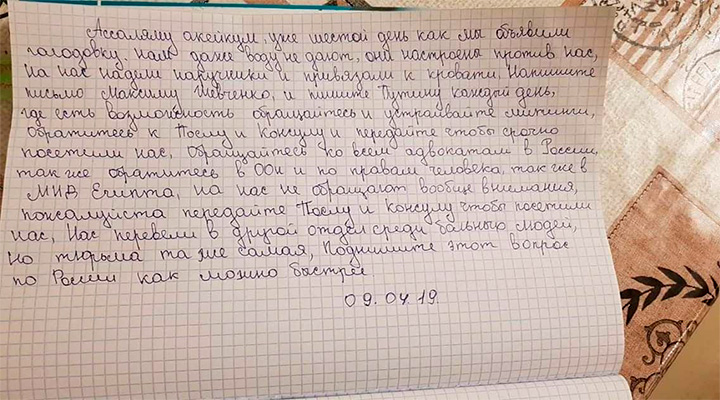 Ассаляму алейкум, уже шестой день как мы объявили
голодовку. нам даже воду не дают, они настроены против нас,
на нас надели наручники и привязали к кровати. Напишите
письмо Максиму Шевченко, и пишите Путину каждый день,
где есть возможность обращайтесь и устраивайте митинги,
Обратитесь к Послу и Консулу и передайте чтобы срочно
посетили нас, Обращайтесь ко всем адвокатам в России,
так же обратитесь в ООН и по правам человека, так же в
МИД Египта, на нас не обращают вообще внимания,
пожалуйста передайте Послу и Консулу чтобы посетили
нас, Нас перевели в другой отдел среди больных людей,
но тюрьма та же самая, Поднимите этот вопрос
по России как можно быстрее
09.04.19